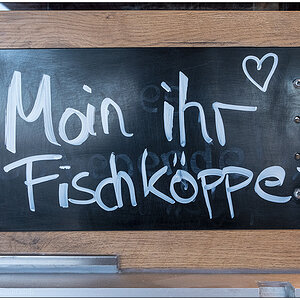 Moin ihr
Fischköppe